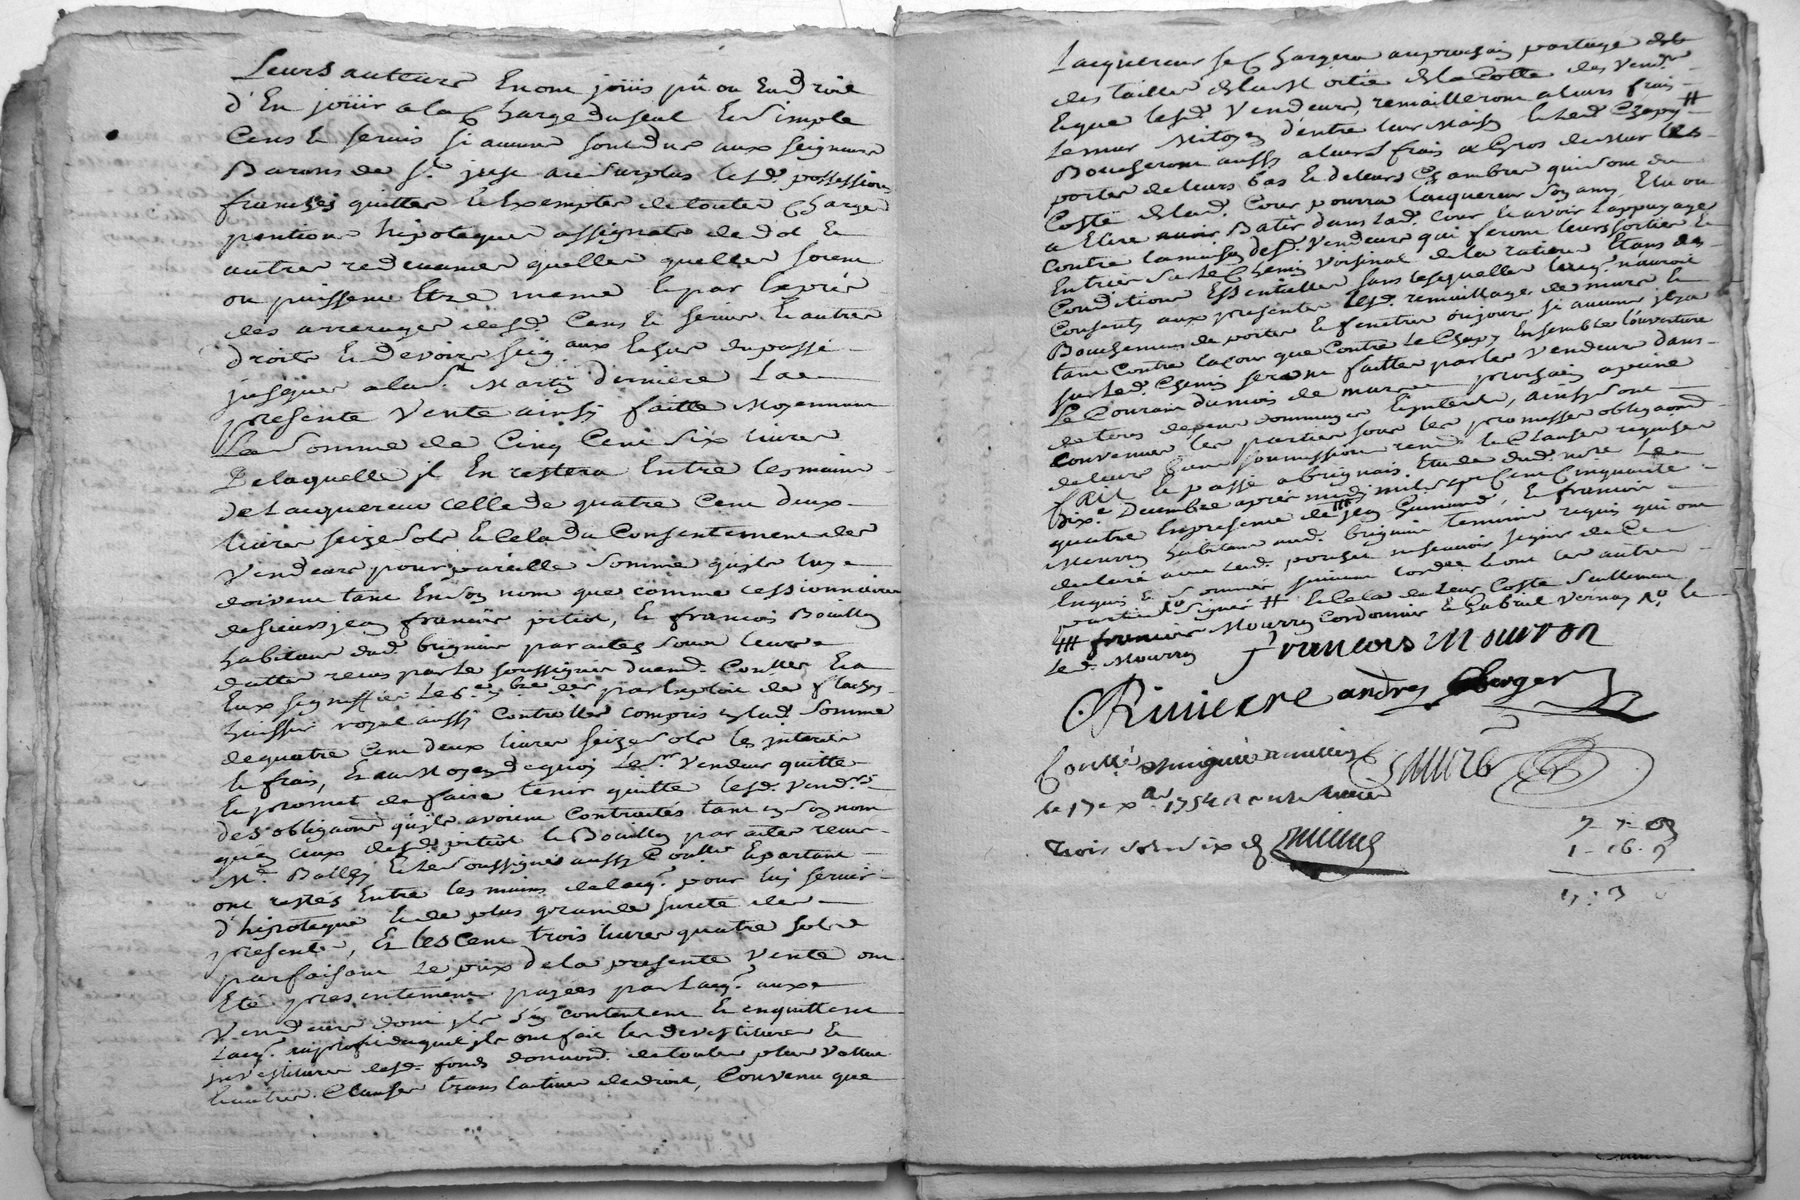 Leurs auteurs En ont joüis pû ou Eu droit
d'En joüir a la Charge du seul Et simple
Cens Et servis si aucun sont dus aux seigneurs
Barons de St. just au surplus lesd. possessions
franches quittes Et Exemptes de toutes Charges
pentions hipoteques assignats de dot Et
autres redevances quelles quelles soient
ou puissent Etre meme Et par Exprés
des arrerages desd. Cens Et servis Et autres
droits Et devoirs seig.aux Echus du passé
jusques a la St Martin derniere La
presente Vente ainsy faitte Moyennant
La Somme de Cinq Cent six livres
De laquelle jl En restera Entre les mains
de Lacquereur celle de quatre Cent deux
livres seize sols Et Cela du Consentement des
Vendeurs pour pareille somme quils luy
doivent tant En son nom que comme cessionnaire
de sieurs jean francois pitiot, Et francois Bouillon
habitant dud. brignais par actes sous leurs
dattes recus par le soussigné duemt. Conttés Et a
Eux signiffié le par Exploit de flachon
huissier royal aussy Controllé compris Enlad. somme
de quatre Cent deux livres seize sols les jnterets
Et frais, Et au Moyen de quoy Le Sr Vendeur quitte
Et promet de faire tenir quitte lesd. Vendrs
des obligaons quils avoient Contractés tant En son nom
qu'En ceux desd. pitiot Et Bouillon par actes recus
Me. Balley Et le soussigné aussy Conttés Et partant
ont restés Entre les mains de lacq. pour luy servir
d'hipoteque Et de plus grande sureté des
presentes, Et les Cent trois livres quatre sols
parfaisant le prix de la presente Vente ont
Eté presentement payées par Lacq. aux
Vendeurs dont jls s'En contentent Et Enquittent
Lacq. au profit duquel jls ont fait les devestitures Et
jnvestitures desd. fonds donnaons. de toutes plus Vallue
Et autres Clauses translatives de droit, Convenu que
Lacquereur se Chargera au prochain partage des
des tailles de la Cotte des Vendrs
Et que lesd. Vendeurs, remailleront a leurs frais
Le mur Mitoyen d'entre leur Maison Et led. Chapy #
Boucheront aussy a leurs frais Et Gros de Mur les
portes de leurs bas Et de leurs Chambres qui sont du
Costé de lad. Cour pourra lacquereur son amy Elu ou
a Elire Batir dans lad. Cour Et avoir Lappuyage
contre la maison desd. Vendeurs qui feront leurs sorties Et
Entrées sur le Chemin Voisinal de la ratiere Etans des
Conditions Essentielles sans lesquelles lacq. n'auroit
Consenty aux presentes lesd. remaillages de murs Et
Bouchement de portes Et fenetres ou jours si aucuns jl y a
tant contre la cour que Contre le Chapy Ensemble l'ouverture
sur led. Chemin seront faittes par les Vendeurs dans
Le Courant du mois de mars prochain a peine
de tous depens dommages Et jnterets, ainsy sont
convenues les parties sous les promesses obligaons
de leurs biens soumissions renons Et Clauses requises
Fait Et passé a brignais Etude dud. nore Le
Dix.e Decembre apres midy mil sept Cent Cinquante
quatre En presence de ### jean Guinand, Et francois
Mourron habitant aud. brignais temoins requis qui ont
declaré avec led. pouzet ne scavoir signer de Ce
Enquis Et sommés suivant lordce Et ont les autres
parties ro. signé # Et Cela de leur Costé seullement
### francois Mourron Cordonnier Et Gabriel Vernay ro. Et
led. Mourron François mouron
Riuiere andre Berger
Conttlé a St genis
le 17e xbre 1754 Recu
Trois sols six d
7-7-
1-16-